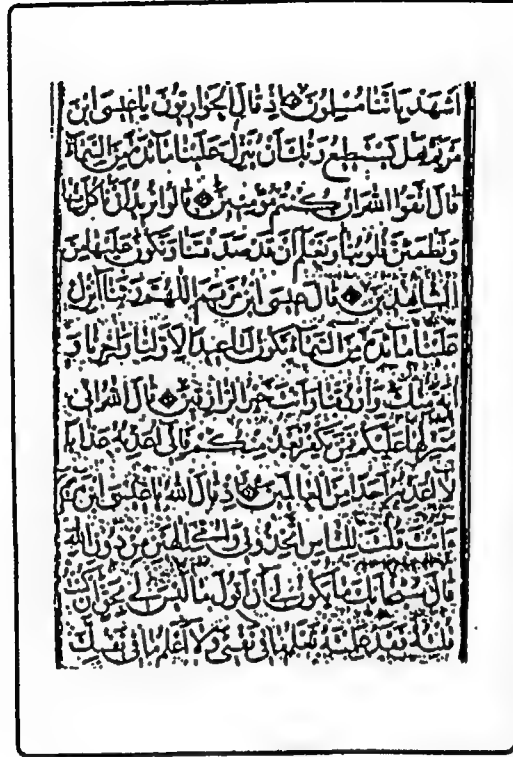 اشهد باننا مسلمون اذ قال الحواريون يا عيسى ابن
مريم هل يستطيع ربك ان ينزل علينا مائدة من السماء
قال اتقوا الله ان كنتم مؤمنين قالوا نريد ان ناكل منها
وتطمئن قلوبنا ونعلم ان قد صدقتنا ونكون عليها من
الشاهدين قال عيسى ابن مريم اللهم ربنا انزل
علينا مائدة من السماء تكون لنا عيدا لاولنا واخرنا و
اية منك وارزقنا وانت خير الرازقين قال الله اني
منزلها عليكم فمن يكفر بعد منكم فاني اعذبه عذابا
لا اعذبه احدا من العالمين اذ قال الله يا عيسى ابن مريم
انت قلت للناس اتخذوني وامي الهين من دون الله
قال سبحانك ما يكون لي ان اقول ما ليس لي بحق ان كنت
قلته فقد علمته تعلم ما في نفسي ولا اعلم ما في نفسك